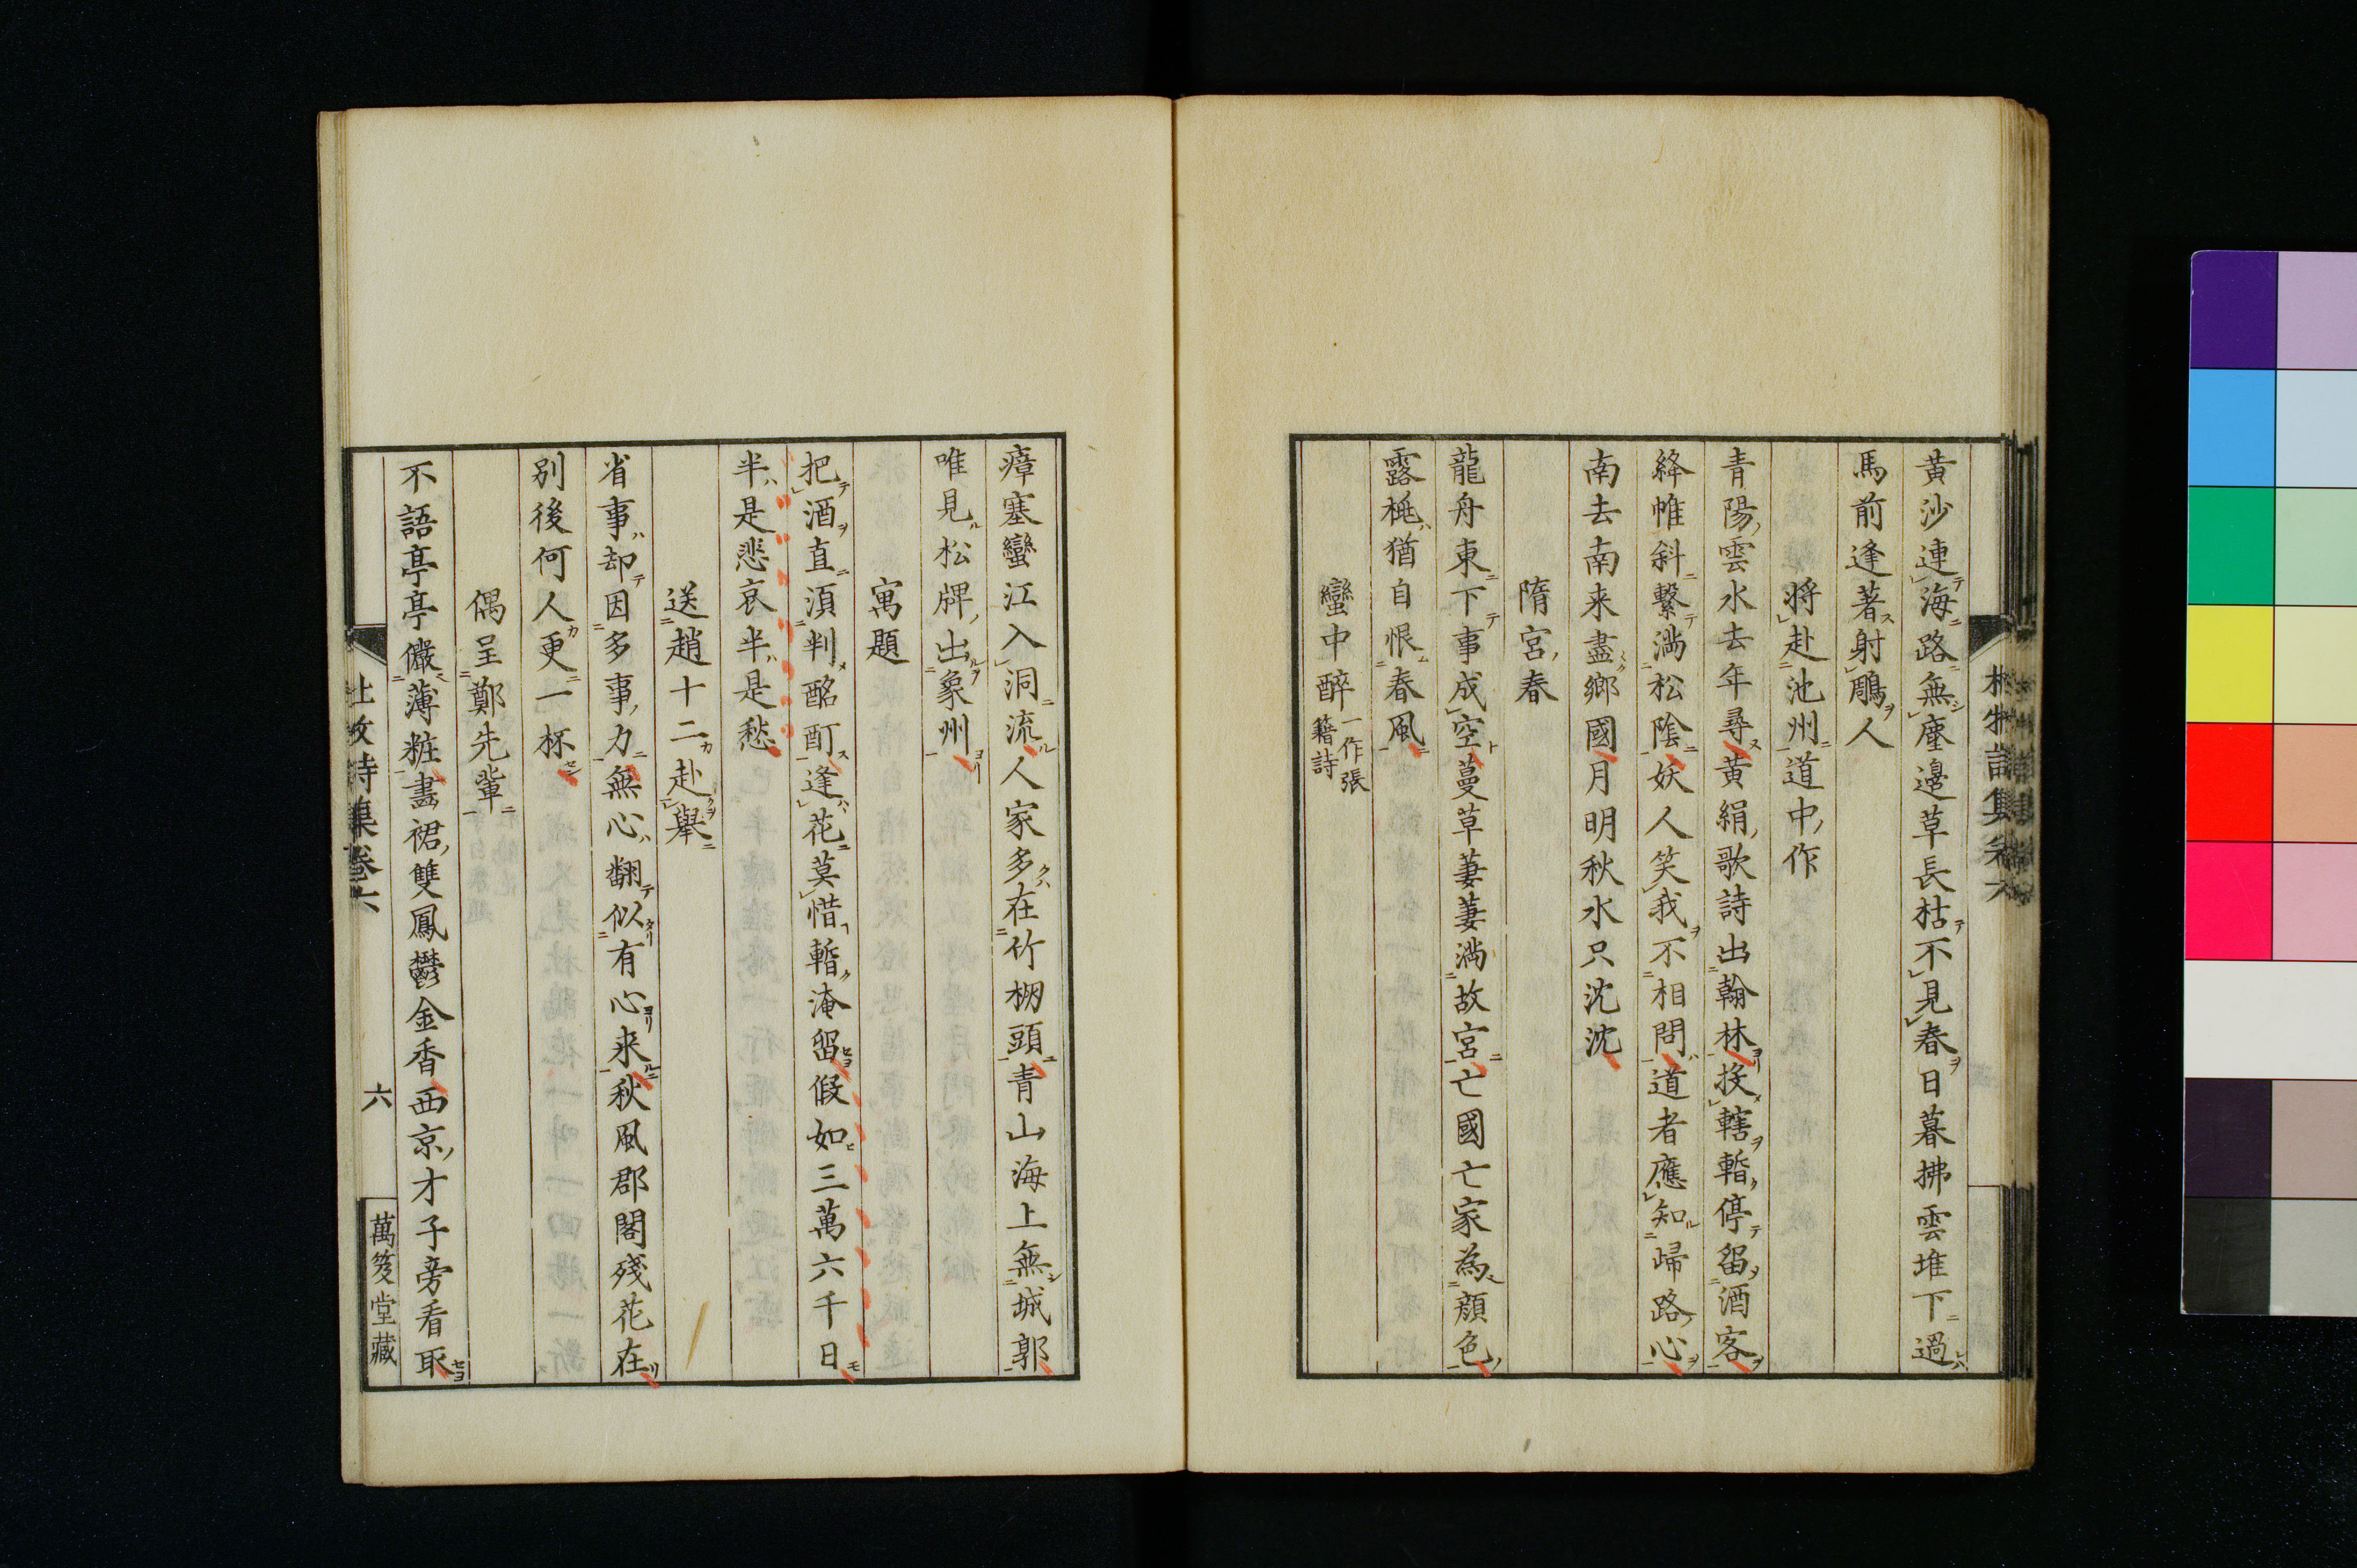 黄沙連海路無塵邉草長枯不見春日暮拂雲堆下過
馬前逢著射鵰人
將赴池州道中作
青陽雲水去年尋黄絹歌詩出翰林投轄暫停留酒客
絳帷斜繫滿松陰妖人笑我不相問道者應知歸路心
南去南来盡鄉國月明秋水只沈沈
隋宮春
龍舟東下事成空蔓草萋萋滿故宮亡國亡家為顔色
露桃猶自恨春風
蠻中醉一作張籍詩
瘴塞蠻江入洞流人家多在竹棚頭青山海上無城郭
唯見松牌出象州
寓題
把酒直須判酩酊逢花莫惜暫淹留假如三萬六千日
半是悲哀半是愁
送趙十二赴舉
省事却因多事力無心翻似有心来秋風郡閣殘花在
別後何人更一杯
偶呈鄭先輩
不語亭亭儼薄粧畫裙雙鳳鬱金香西京才子旁看取
杜牧詩集卷六
六
萬笈堂藏